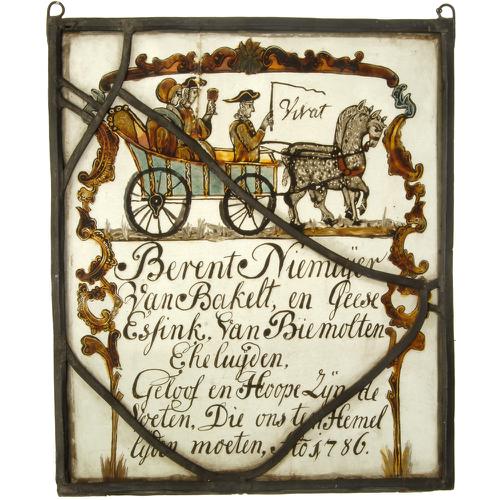 Vivat
Berent Niemeijer
Van Bakelt, en Geese
Esfink, Van Biemolten
Eheluijden,
Geloof en Hoope Zijn de
Voeten, Die ons ten Hemel
lijden moeten, Ao 1786.